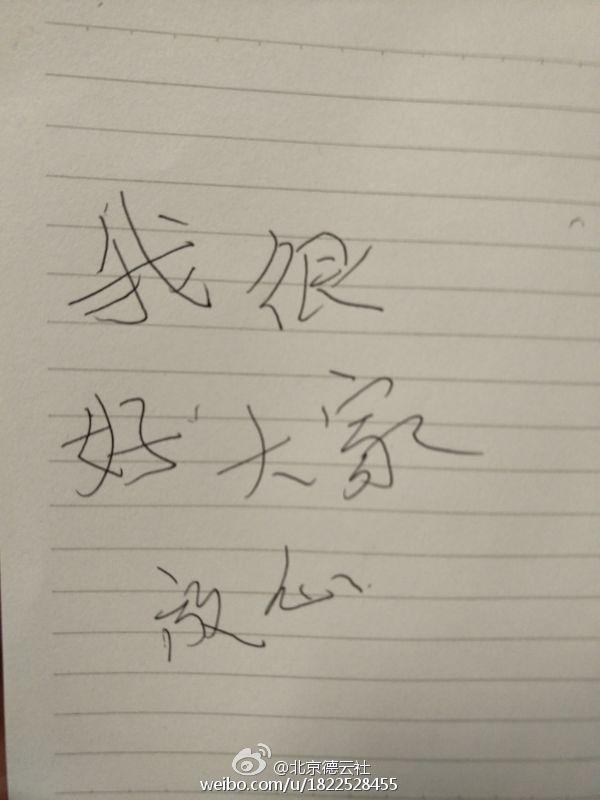 我很
好大家
放心
@北京德云社
weibo.com/u/1822528455